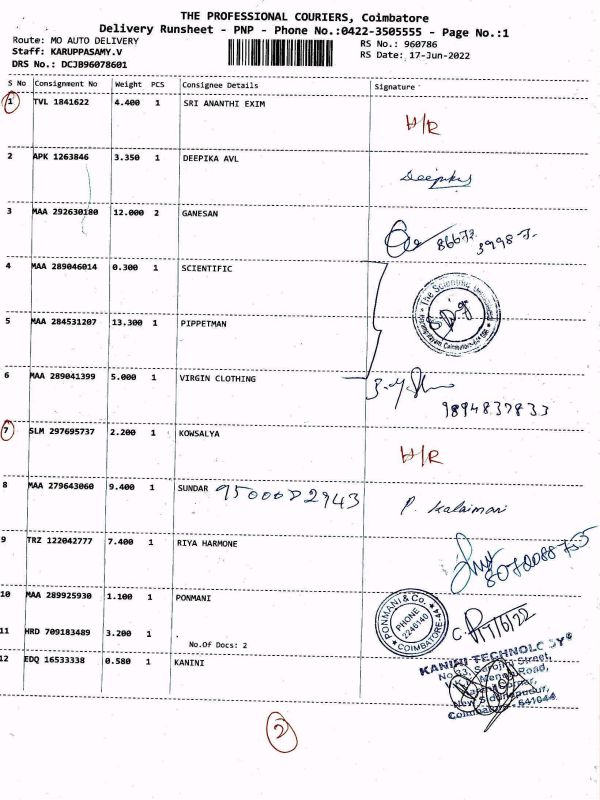 THE PROFESSIONAL COURIERS, Coimbatore
Delivery Runsheet - PNP - Phone No.:0422-3505555 - Page No.:1
Route: MO AUTO DELIVERY RS No.: 960786
Staff: KARUPPASAMY.V RS Date: 17-Jun-2022
DRS No.: DCJB96078601
S No Consignment No Weight PCS Consignee Details Signature
1 TVL 1841622 4.400 1 SRI ANANTHI EXIM
H/R
2 APK 1263846 3.350 1 DEEPIKA AVL
Deepika
3 MAA 292630180 12.000 2 GANESAN
4 MAA 289046014 0.300 1 SCIENTIFIC
5 MAA 284531207 13.300 1 PIPPETMAN
6 MAA 289041399 5.000 1 VIRGIN CLOTHING
9894837833
7 SLM 297695737 2.200 1 KOWSALYA
H/R
8 MAA 279643060 9.400 1 SUNDAR
P. Kalaimani
9 TRZ 122042777 7.400 1 RIYA HARMONE
10 MAA 289925930 1.100 1 PONMANI
PONMANI & Co.
PHONE
2246140
COIMBATORE-44
11 HRD 709183489 3.200 1
No.Of Docs: 2
12 EDQ 16533338 0.580 1 KANINI
KANINI TECHNOLOGY
No.33, Sarojini Street,
Road,
New Siddhapudur,
Coimbatore - 641044
2